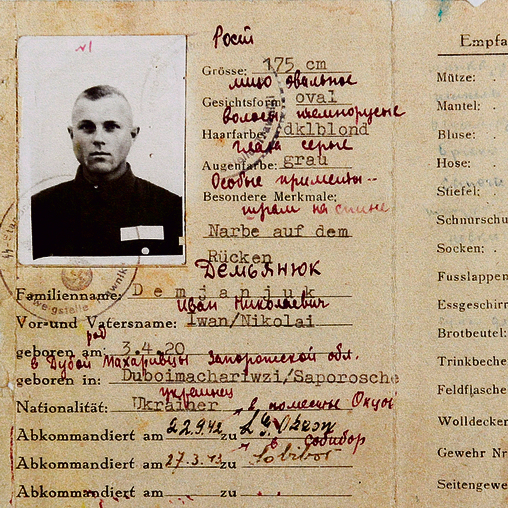 №1
Рост
Grösse: 175 cm
лицо овальное
Gesichtsform: oval
волосы темнорусые
Haarfarbe: dklblond
глаза серые
Augenfarbe: grau
Особые приметы--
Besondere Merkmale:
шрам на спине
Narbe auf dem
Rücken
Демьянюк
Familienname: Demjanjuk
Иван Николаевич
Vor-und Vatersname: Iwan/Nikolai
род
geboren am: 3.4.20
в Дубой Махаривцы Запорожской обл.
geboren in: Duboimachariwzi/Saporosche
украинец
Nationalität: Ukrainer
в поместье Окцов
Abkommandiert am 22.9.42 zu L.G. Okzow
в собибор
Abkommandiert am 27.3.43 zu Sobibor
Abkommandiert am zu
Empfa
Mütze:
Mantel:
Bluse:
Hose:
Stiefel:
Schnurschu
Socken:
Fusslappen
Essgeschirr
Brotbeutel:
Trinkbeche
Feldflasche
Wolldecken
Gewehr Nr
Seitengewe